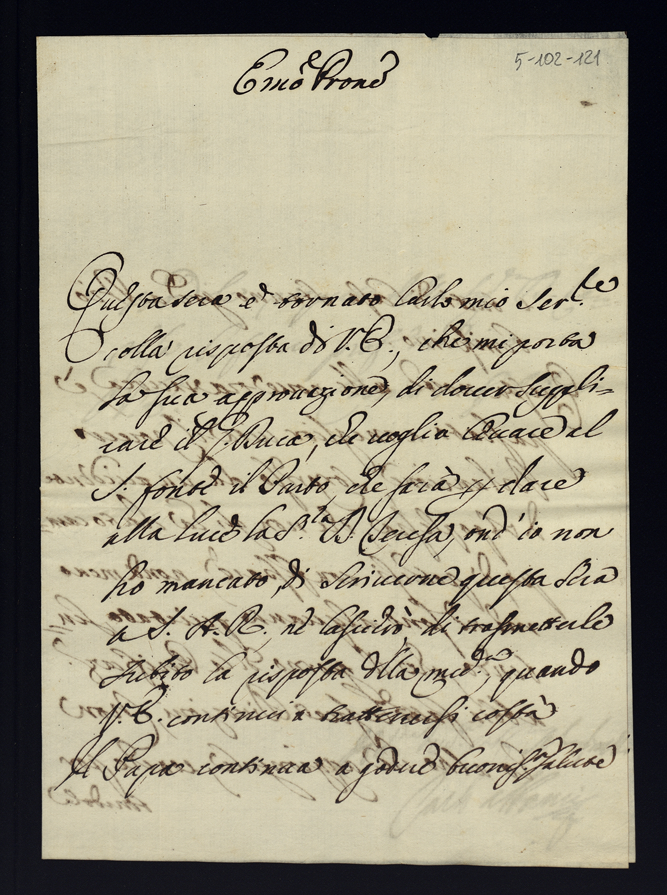 5-102-121
Emo. Prone.
Questa sera è tornato Carlo mio Serre.
colla risposta di V. E., che mi porta
la sua approvazione di dover suppli=
care il Sr. Duca, che voglia levare al
S. fonte il Parto, che sarà p dare
alla luce la Sra. D. Teresa, ond' io non
ho mancato di scrivere questa sera
a S. A. R., nè lascierò di trasmetterle
subito la risposta della medma. quando
V. E. continui a trattenersi costà
Il Papa continua a godere buonissa. salute